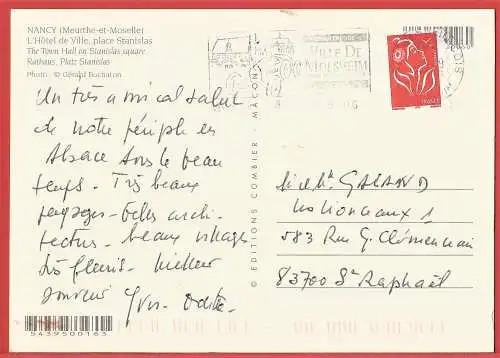 NANCY (Meurthe-et-Moselle)
L'Hôtel de Ville, place Stanislas
The Town Hall on Stanislas square
Rathaus, Platz Stanislas
Photo : © Gérald Buthaud
Un très amical salut
de notre périple en
Alsace sous le beau
temps - Très beaux
paysages - belles archi-
tectures - beaux villages
très fleuris - Meilleur
souvenir Yves - Odette
© EDITIONS COMBIER - MÂCON
VILLE DE
MOLSHEIM
FRANCE
M. et Me GALAND
Les Lionceaux 1
583 Rue G. Clémenceau
83700 St Raphaël
5439500163